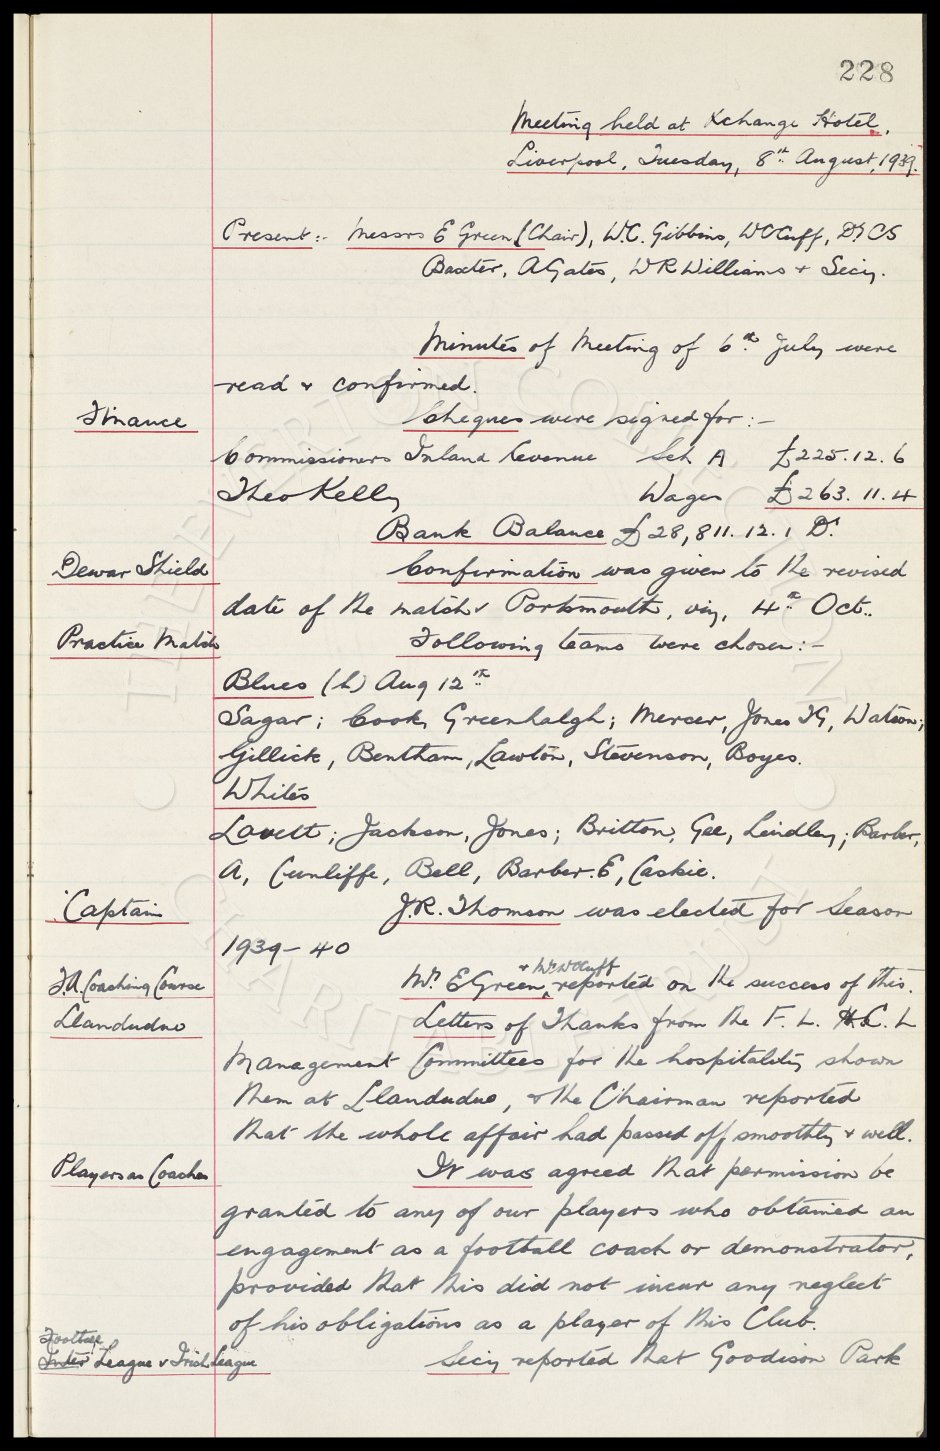 228
Meeting held at Xchange Hotel,
Liverpool, Tuesday, 8th August, 1939.
Present:- Messrs E Green (Chair), W.C. Gibbins, W C Cuff, Dr C S
Baxter, A Gates, W R Williams + Secy.
Minutes of Meeting of 6th July were
read & confirmed.
Finance Cheques were signed for :-
Commissioners Inland Revenue Sch A £225.12.6
Theo Kelly Wages £263.11.4
Bank Balance £28,811.12.1 Dr.
Dewar Shield Confirmation was given to the revised
date of the match v Portsmouth, viz, 4th Oct..
Practice Match Following teams were chosen :-
Blues (h) Aug 12th
Sagar; Cook, Greenhalgh; Mercer, Jones TG, Watson;
Gillick, Bentham, Lawton, Stevenson, Boyes.
Whites
Lovett; Jackson, Jones; Britton, Gee, Lindley; Barber,
A, Cunliffe, Bell, Barber.E, Caskie.
Captain J.R. Thomson was elected for Season
1939-40
F.A. Coaching Course Mr. E Green + Mr W C Cuff reported on the success of this.
Llandudno Letters of Thanks from the F. L. C. L
Management Committees for the hospitality shown
them at Llandudno, & the Chairman reported
that the whole affair had passed off smoothly & well.
Players as Coaches It was agreed that permission be
granted to any of our players who obtained an
engagement as a football coach or demonstrator,
provided that this did not incur any neglect
of his obligations as a player of this Club.
Football
Inter League v Irish League Secy reported that Goodison Park
THE EVERTON COLLECTION
CHARITABLE TRUST